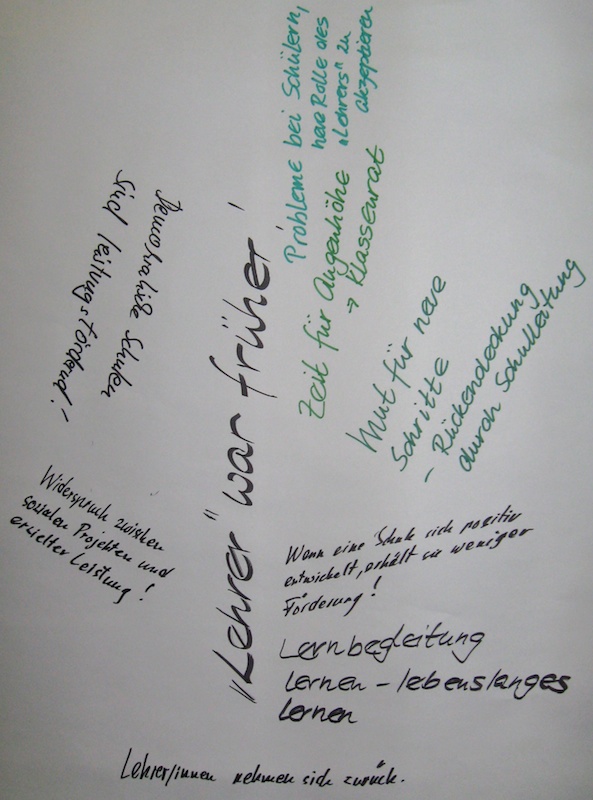 „Lehrer" war früher
Probleme bei Schülern,
neue Rolle des
"Lehrers" zu
akzeptieren
Zeit für Augenhöhe
→ Klassenrat
Mut für neue
Schritte
- Rückendeckung
durch Schulleitung
Demokratische Schulen
sind leitungsfördernd!
Widerspruch zwischen
sozialen Projekten und
erzielter Leistung!
Wenn eine Schule sich positiv
entwickelt, erhält sie weniger
Förderung!
Lernbegleitung
Lernen - lebenslanges
lernen
Lehrer/innen nehmen sich zurück.